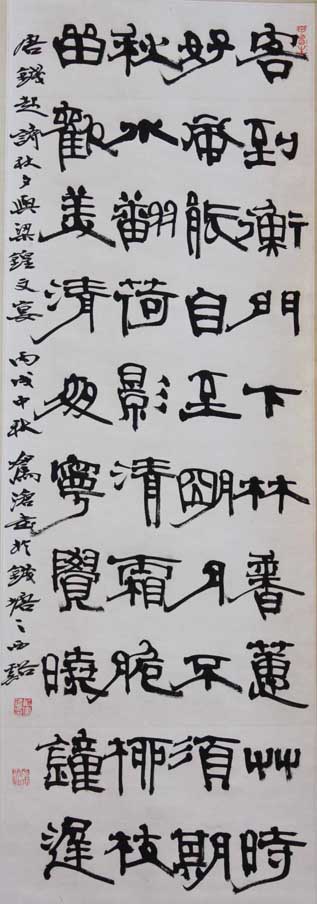 客到衡門下林香蕙艸時
好風能自至朙月不須期
秋水翻荷影清霜脆栁枝
留歡美清夜寧覺曉鐘遲
唐錢起詩秋夕與梁鍠文宴 丙戌中秋 書於錢塘之西谿